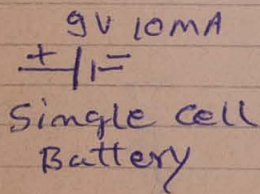 9V 10MA
+ -
Single cell
Battery